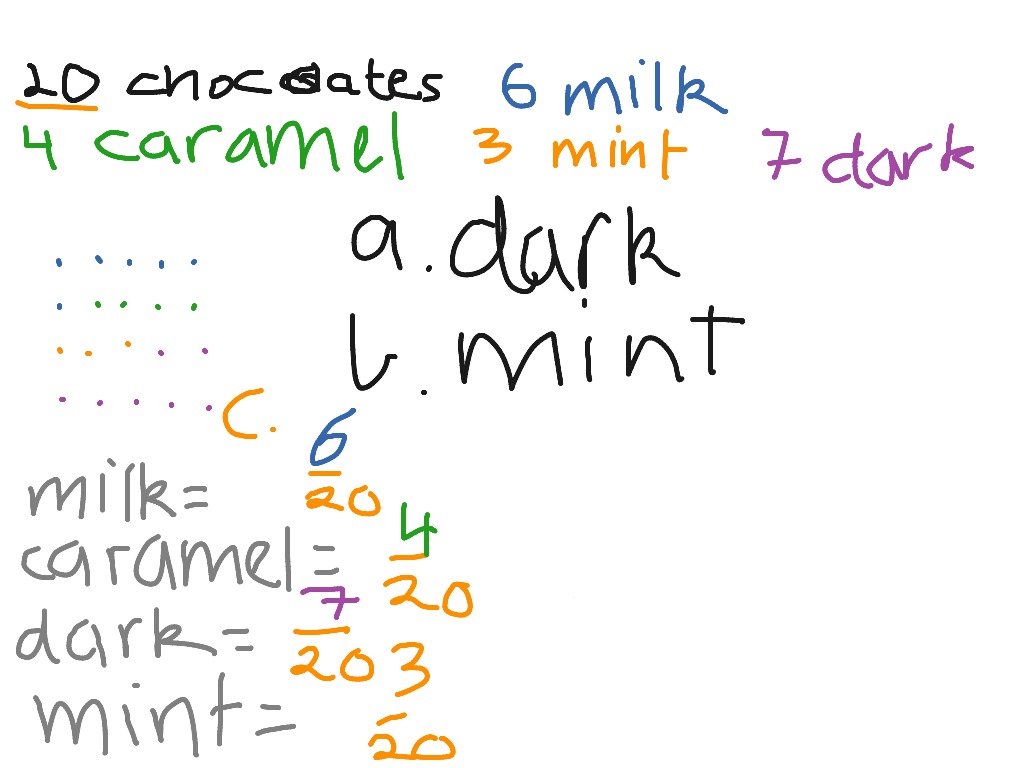 20 chocolates 6 milk
4 caramel 3 mint 7 dark
a. dark
b. mint
c.
milk= 6/20
caramel= 4/20
dark= 7/20
mint= 3/20